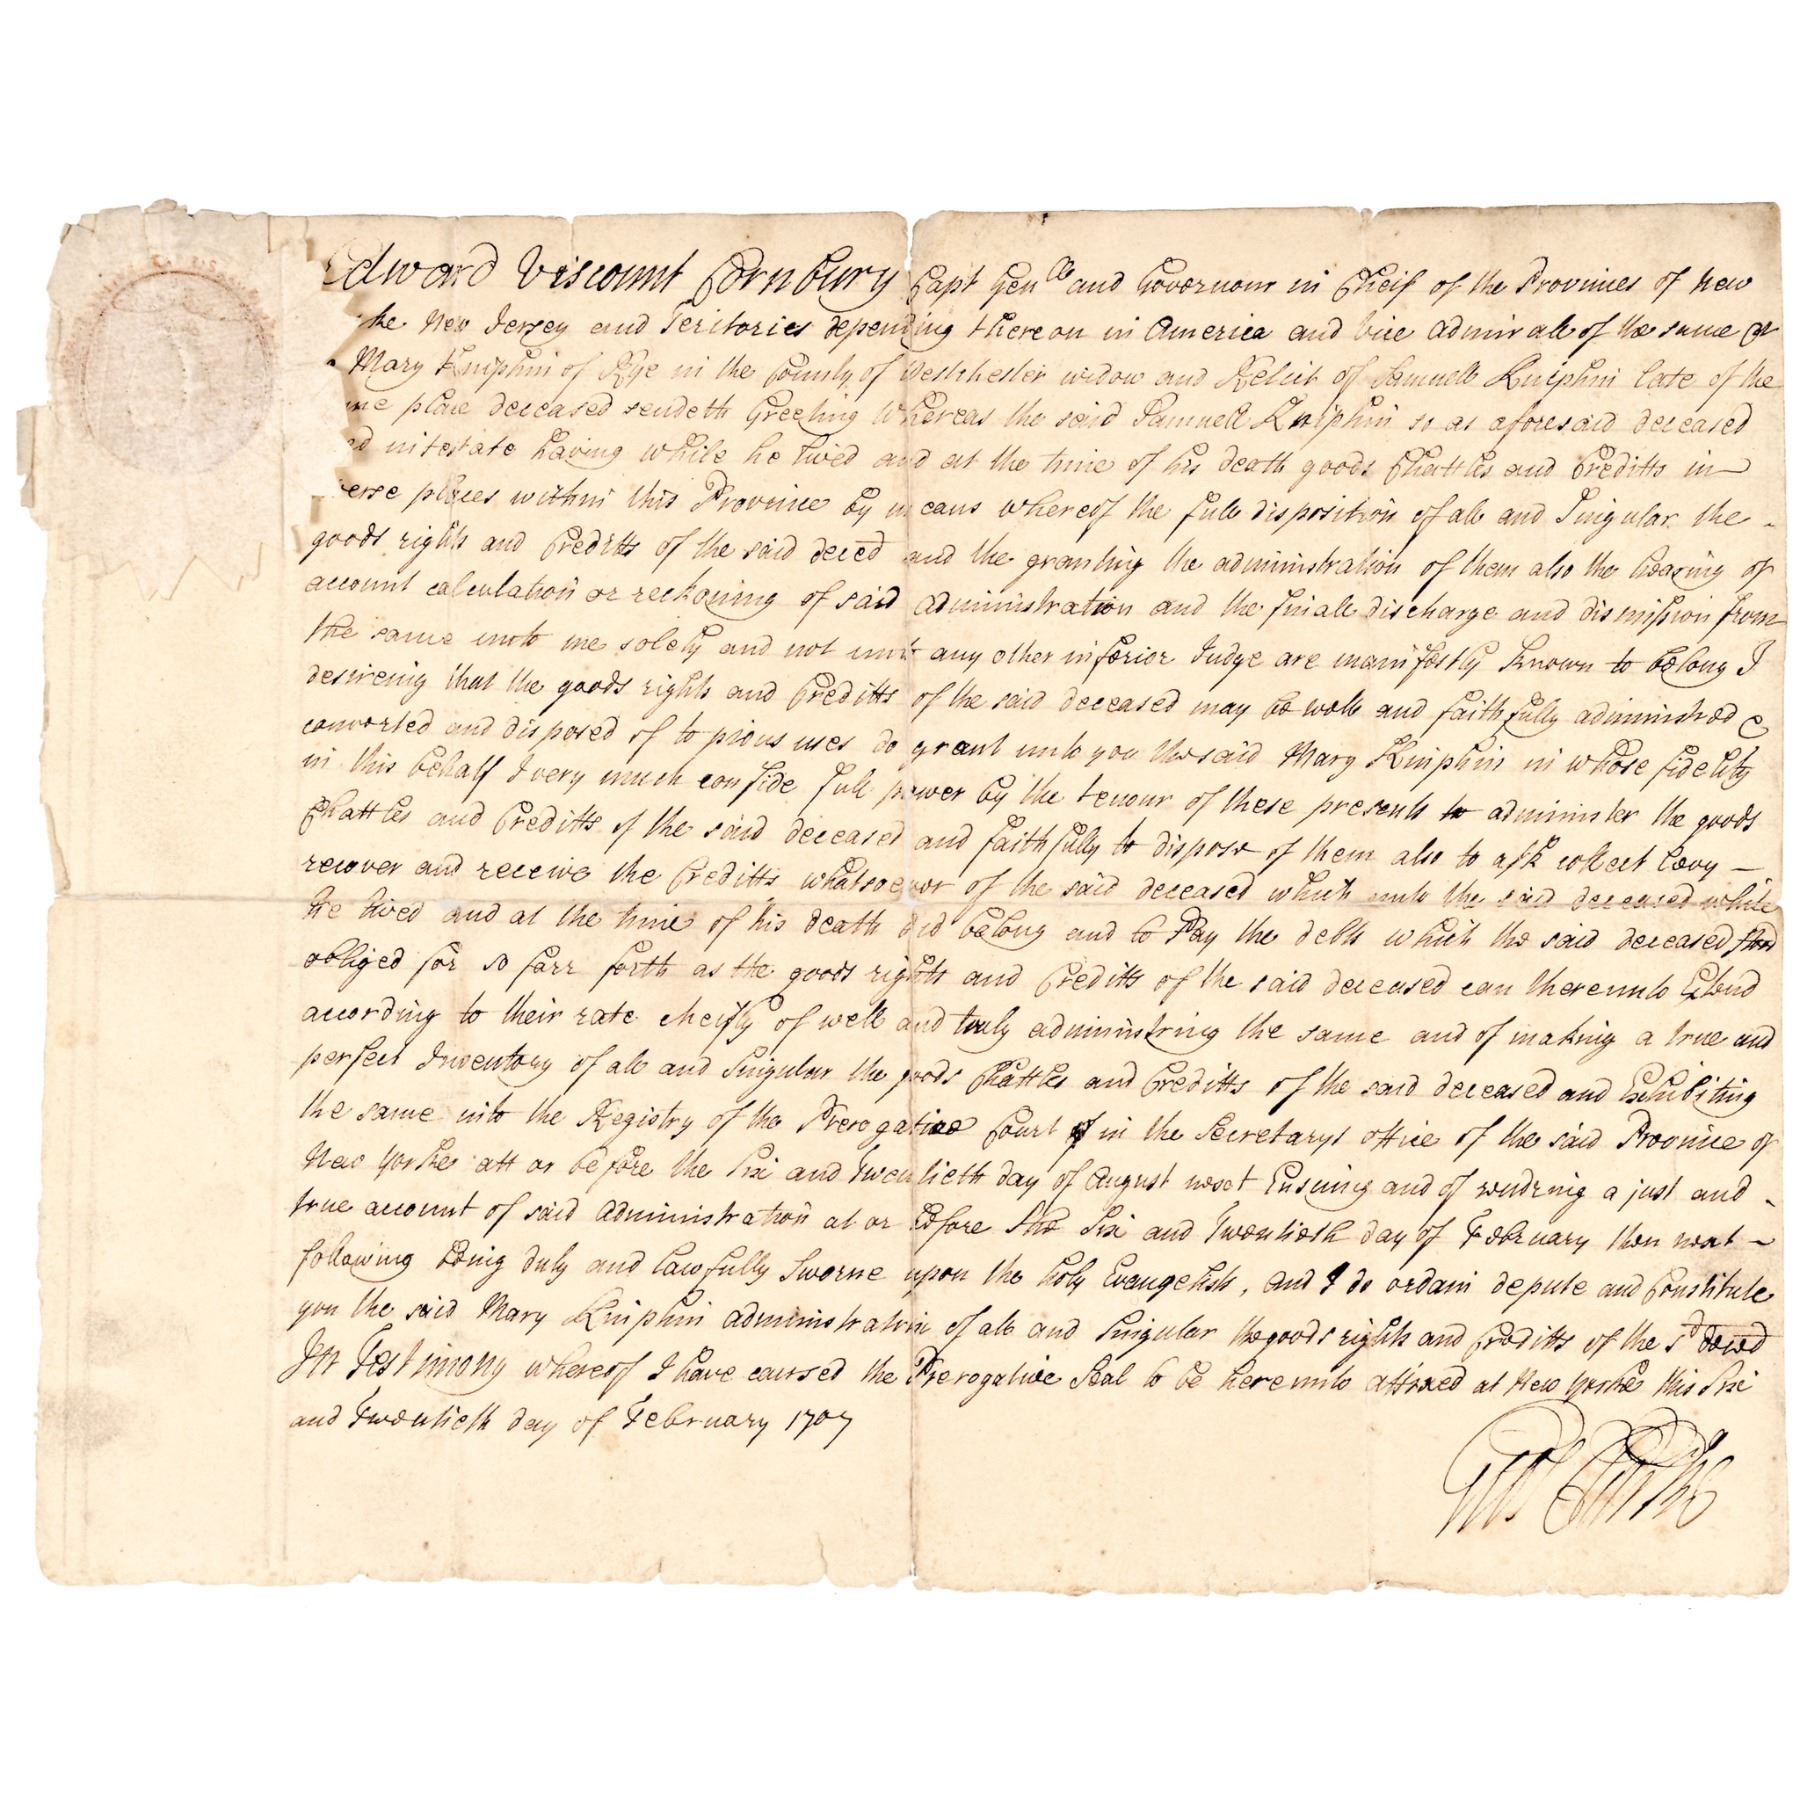 Edward Viscount Cornbury Capt Genll and Governour in Cheif of the Provinces of New
the New Jersey and Teritories depending thereon in America and Vice Admirall of the same &
Mary Kniphin of Rye in the County of Westchester widow and Relict of Samuell Kniphin late of the
me place deceased sendeth Greeting Whereas the said Samuell Kniphin so as aforesaid deceased
ed intestate having while he lived and at the time of his death goods Chattles and Creditts in
verse places within this Province by means whereof the full disposition of all and Singular the -
goods rights and Creditts of the said deced and the granting the administration of them also the hearing of
account calculation or reckoning of said Administration and the finall discharge and dismission from
the same unto me solely and not unto any other inferior Judge are manifestly known to belong I
desireing that the goods rights and Creditts of the said deceased may be well and faithfully administred &
converted and disposed of to pious uses do grant unto you the said Mary Kniphin in whose fidelity
in this behalf I very much confide full power by the tenour of these presents to administer the goods
Chattles and Creditts of the said deceased and faithfully to dispose of them also to ask collect levy -
recover and receive the Creditts whatsoever of the said deceased which unto the said deceased while
he lived and at the time of his death did belong and to Pay the debts which the said deceased stood
obliged for so farr forth as the goods rights and Creditts of the said deceased can thereunto Extend
according to their rate cheifly of well and truly administring the same and of making a true and
perfect Inventory of all and Singular the goods Chattles and Creditts of the said deceased and Exhibiting
the same into the Registry of the Prerogative Court in the Secretarys office of the said Province of
New Yorke att or before the Six and Twentieth day of August next Ensuing and of rendring a just and -
true account of said Administration at or before the Six and Twentieth day of February then next -
following being duly and lawfully Sworne upon the holy Evangelists, and I do ordain depute and Constitute
you the said Mary Kniphin Administratrix of all and Singular the goods rights and Creditts of the sd deced
In Testimony whereof I have caused the Prerogative Seal to be hereunto affixed at New Yorke this Six
and Twentieth day of February 1707